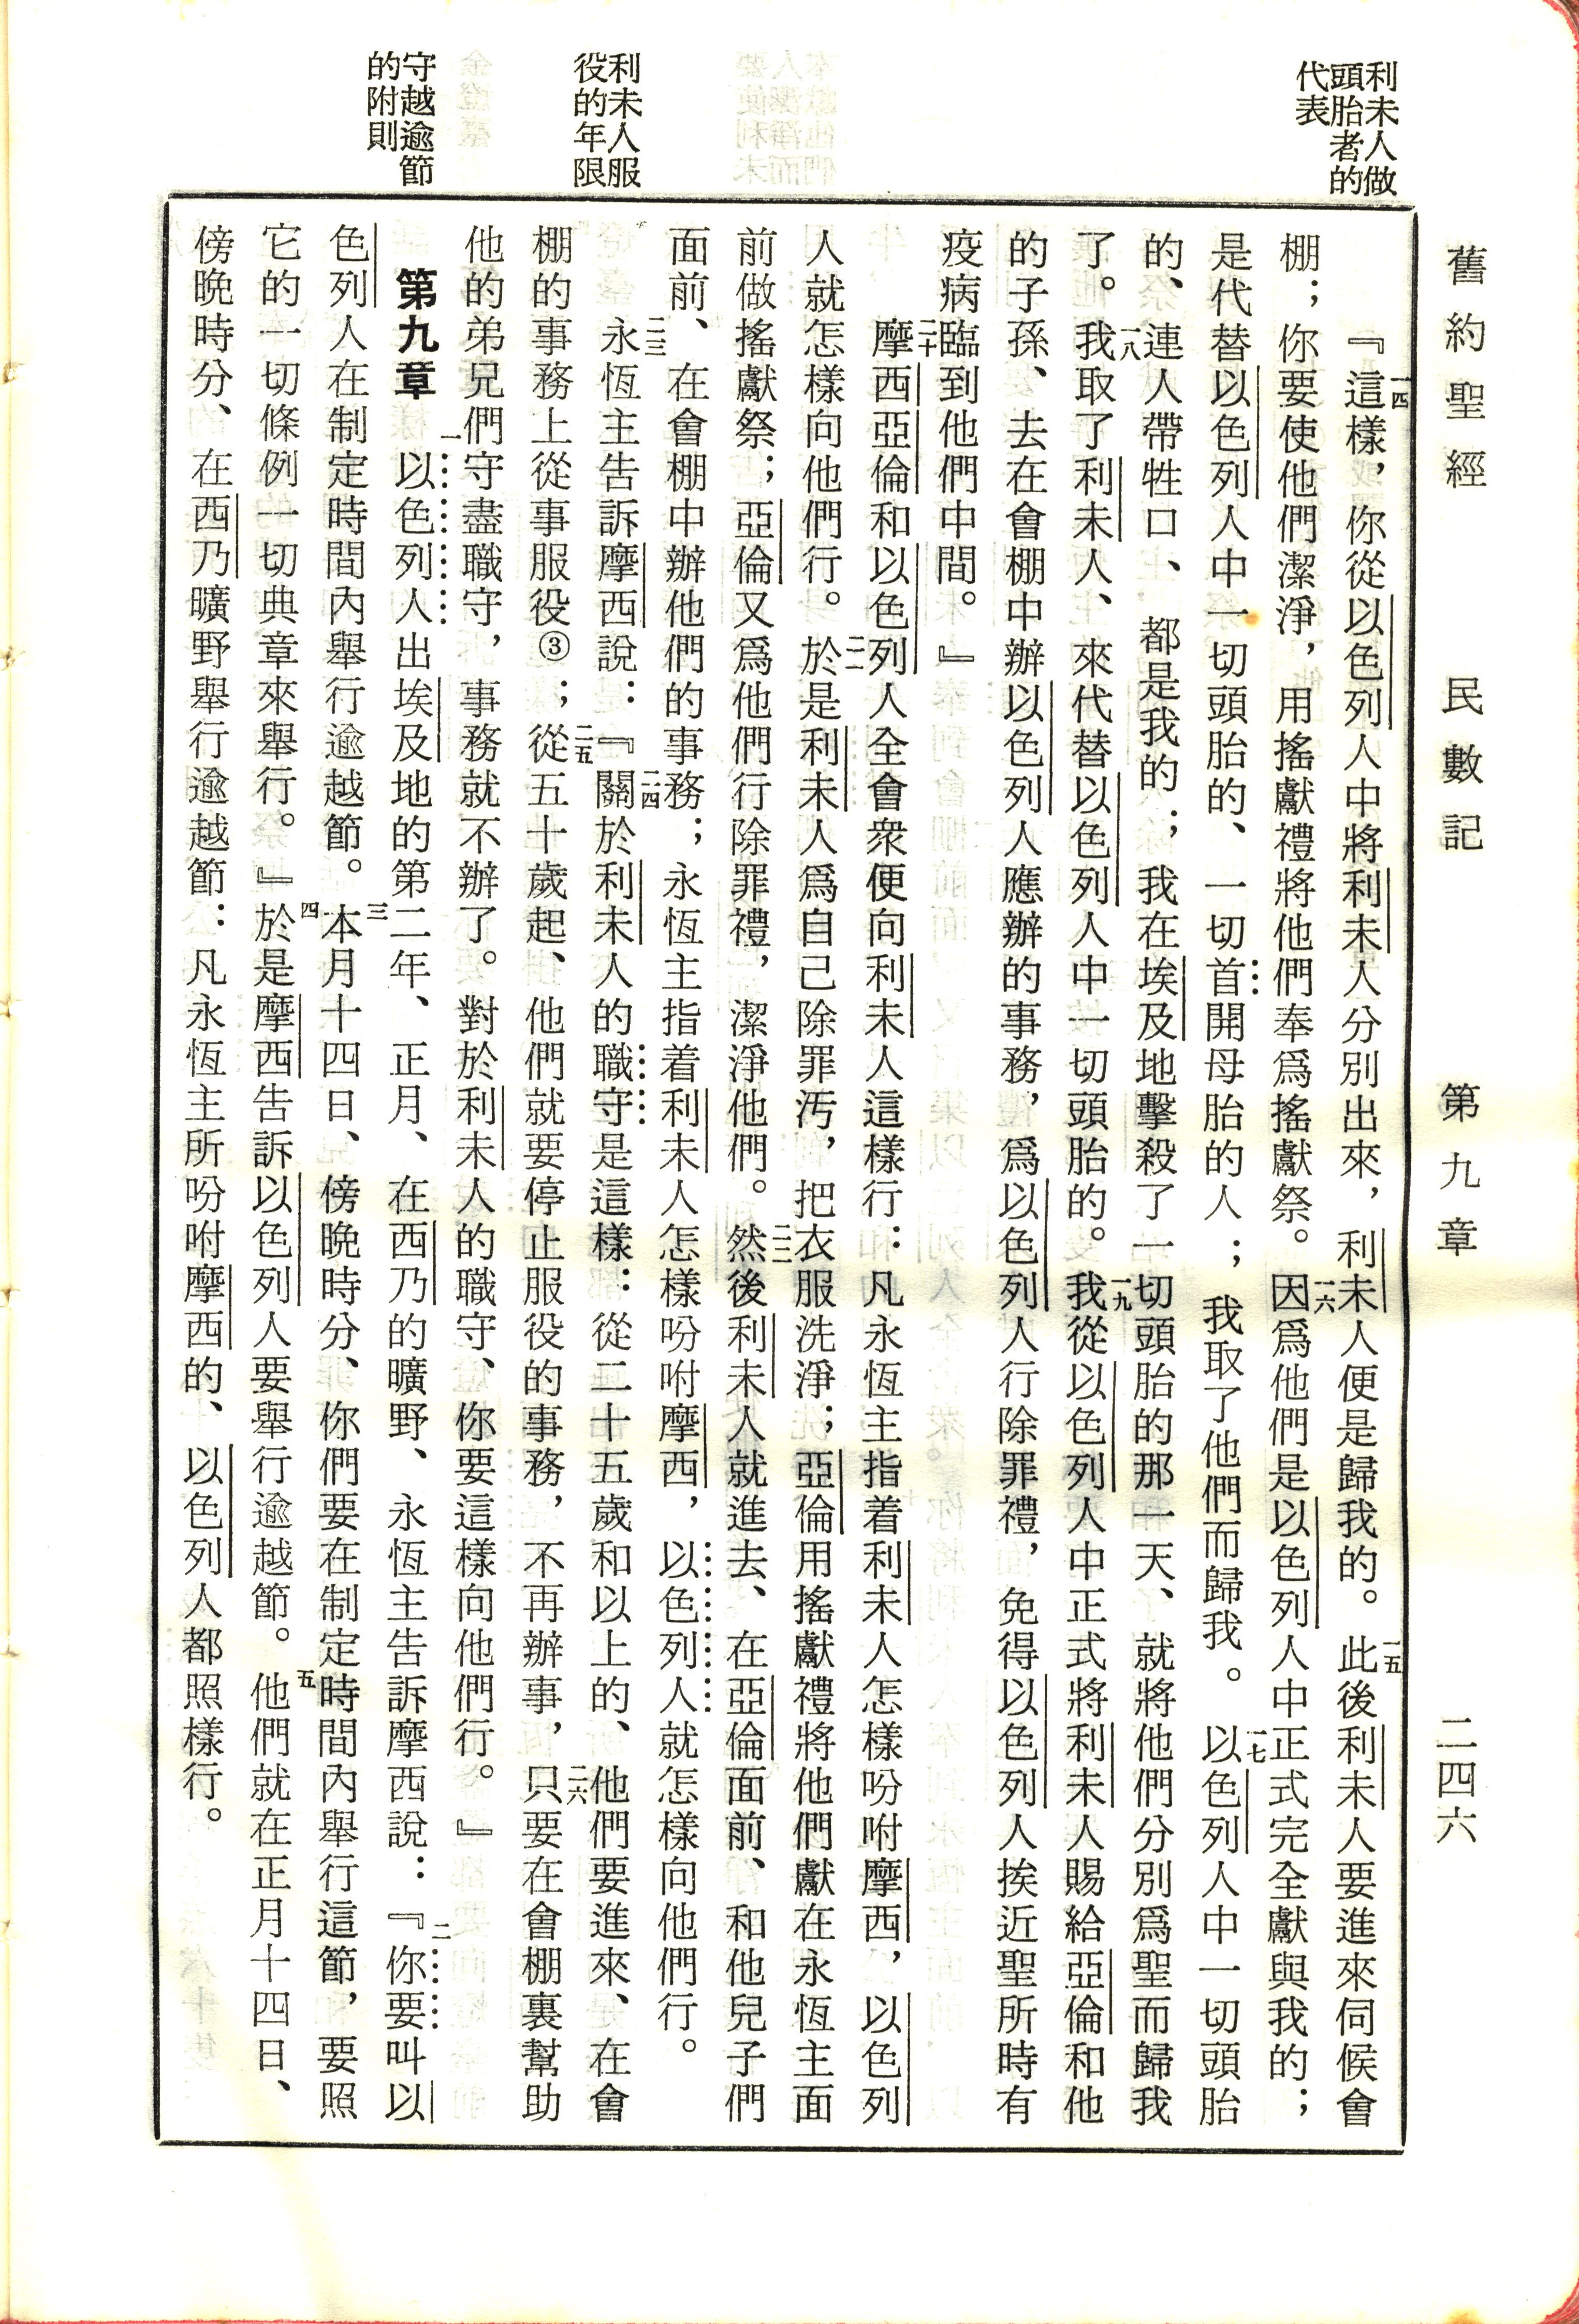 舊約聖經　民數記　第九章　二四六
利未人做
頭胎者的
代表
利未人服
役的年限
守越逾節
的附則
『一四這樣，你從以色列人中將利未人分別出來，利未人便是歸我的。一五此後利未人要進來伺候會
棚；你要使他們潔淨，用搖獻禮將他們奉爲搖獻祭。一六因爲他們是以色列人中正式完全獻與我的；
是代替以色列人中一切頭胎的、一切首開母胎的人；我取了他們而歸我。一七以色列人中一切頭胎
的、連人帶牲口、都是我的；我在埃及地擊殺了一切頭胎的那一天、就將他們分別爲聖而歸我
了。一八我取了利未人、來代替以色列人中一切頭胎的。一九我從以色列人中正式將利未人賜給亞倫和他
的子孫、去在會棚中辦以色列人應辦的事務，爲以色列人行除罪禮，免得以色列人挨近聖所時有
疫病臨到他們中間。』
二十摩西亞倫和以色列人全會衆便向利未人這樣行：凡永恆主指着利未人怎樣吩咐摩西，以色列
人就怎樣向他們行。二一於是利未人爲自己除罪汚，把衣服洗淨；亞倫用搖獻禮將他們獻在永恆主面
前做搖獻祭；亞倫又爲他們行除罪禮，潔淨他們。二二然後利未人就進去、在亞倫面前、和他兒子們
面前、在會棚中辦他們的事務；永恆主指着利未人怎樣吩咐摩西，以色列人就怎樣向他們行。
二三永恆主告訴摩西說：『二四關於利未人的職守是這樣：從二十五歲和以上的、他們要進來、在會
棚的事務上從事服役③；二五從五十歲起、他們就要停止服役的事務，不再辦事，二六只要在會棚裏幫助
他的弟兄們守盡職守，事務就不辦了。對於利未人的職守、你要這樣向他們行。』
第九章　一以色列人出埃及地的第二年、正月、在西乃的曠野、永恆主告訴摩西說：『二你要叫以
色列人在制定時間內舉行逾越節。三本月十四日、傍晚時分、你們要在制定時間內舉行這節，要照
它的一切條例一切典章來舉行。』四於是摩西告訴以色列人要舉行逾越節。五他們就在正月十四日、
傍晚時分、在西乃曠野舉行逾越節：凡永恆主所吩咐摩西的、以色列人都照樣行。